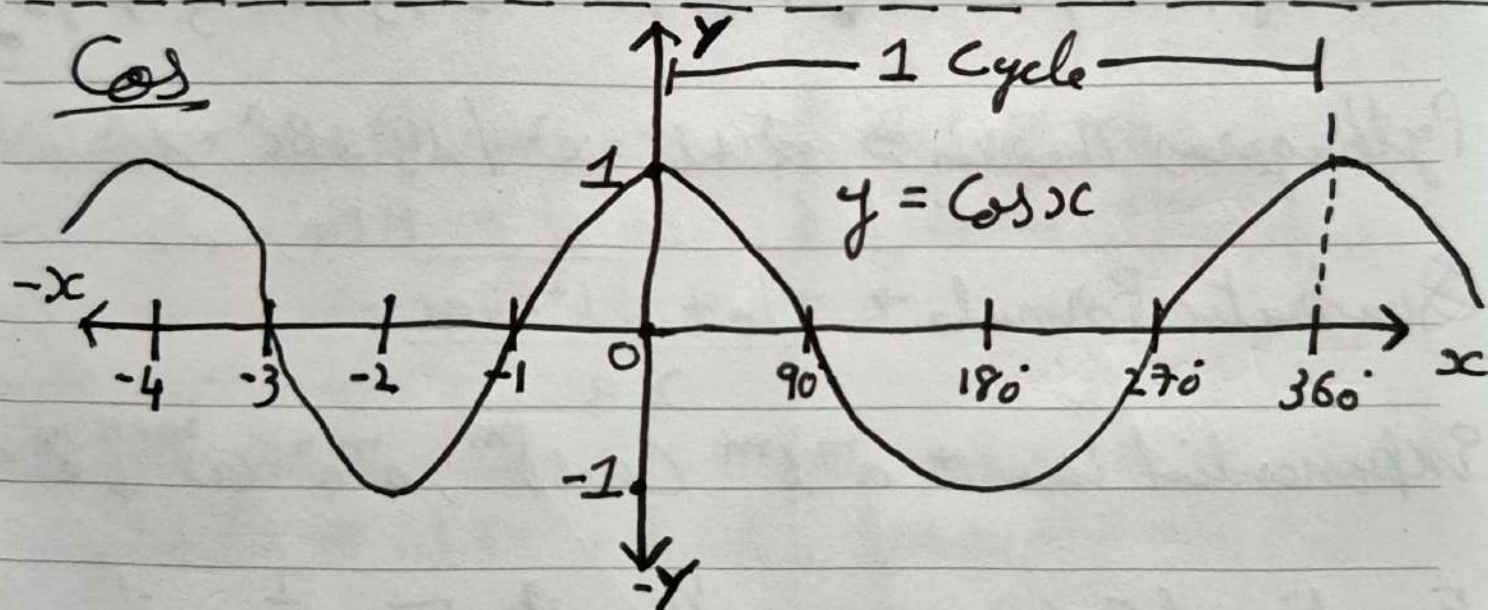 Cos
Y
1 Cycle
1
y = Cosx
-x
0
-4 -3 -2 -1 90° 180° 270° 360° x
-1
-Y